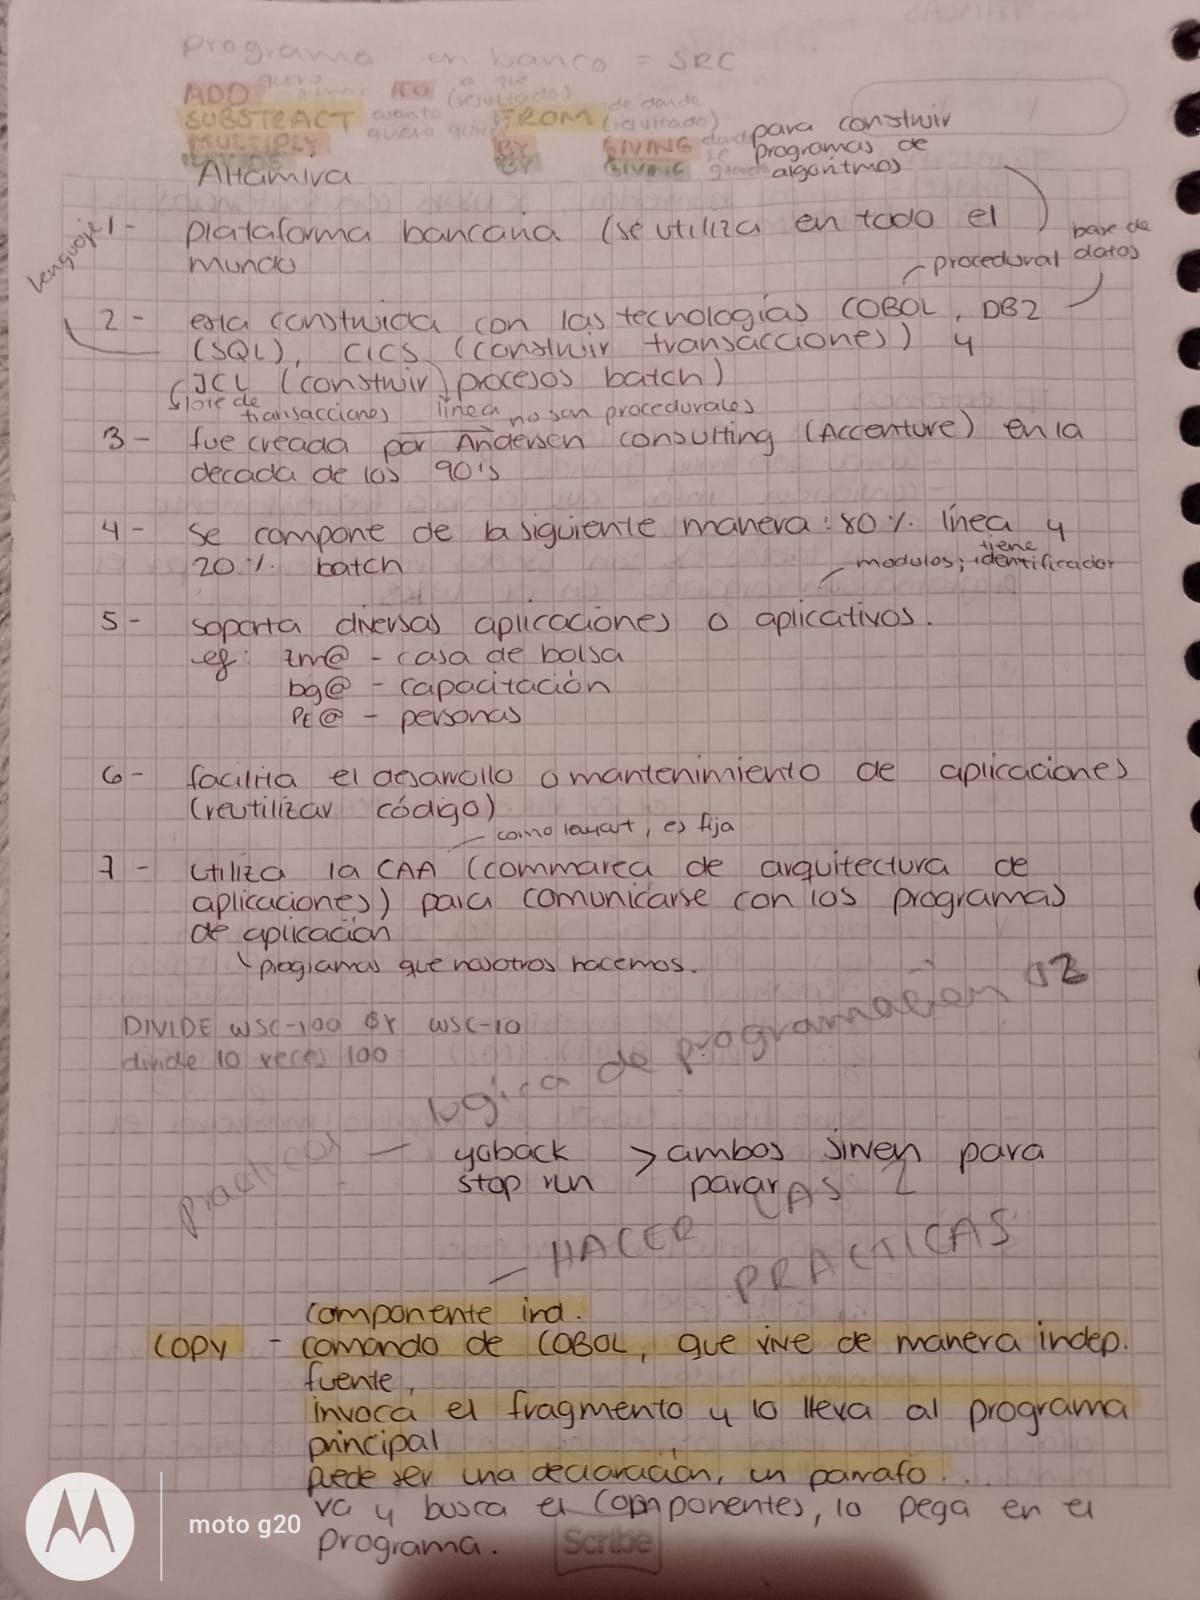 programa en banco = SRC
ADD quiero TO a que (resultado)
SUBSTRACT cuanto quiero FROM de donde (resultado)
MULTIPLY BY GIVING
BY GIVING
para construir
programas de
algoritmos
Altamira
lenguaje
1- plataforma bancaria (se utiliza en todo el
mundo
base de
datos
procedural
2- esta construida con las tecnologías COBOL, DB2
(SQL), CICS (construir transacciones) y
JCL (construir procesos batch)
lote de
transacciones línea no son procedurales
3- fue creada por Andersen consulting (Accenture) en la
decada de los 90's
4- se compone de la siguiente manera: 80%. línea y
20%. batch
modulos; tiene identificador
5- soporta diversas aplicaciones o aplicativos.
ej: zm@ - casa de bolsa
bg@ - capacitación
PE@ - personas
6- facilita el desarrollo o mantenimiento de aplicaciones
(reutilizar código)
como layart, es fija
7- utiliza la CAA (commarea de arquitectura de
aplicaciones) para comunicarse con los programas
de aplicación
programas que nosotros hacemos.
DIVIDE WSC-100 BY WSC-10
divide 10 veces 100
practicas - logica de programación
yoback > ambos sirven para
stop run parar
- HACER LAS 2
PRACTICAS
componente ind.
COPY - comando de COBOL, que vive de manera indep.
fuente,
invoca el fragmento y lo lleva al programa
principal
puede ser una declaración, un parrafo...
va y busca el componentes, lo pega en el
programa.
Scribe
moto g20